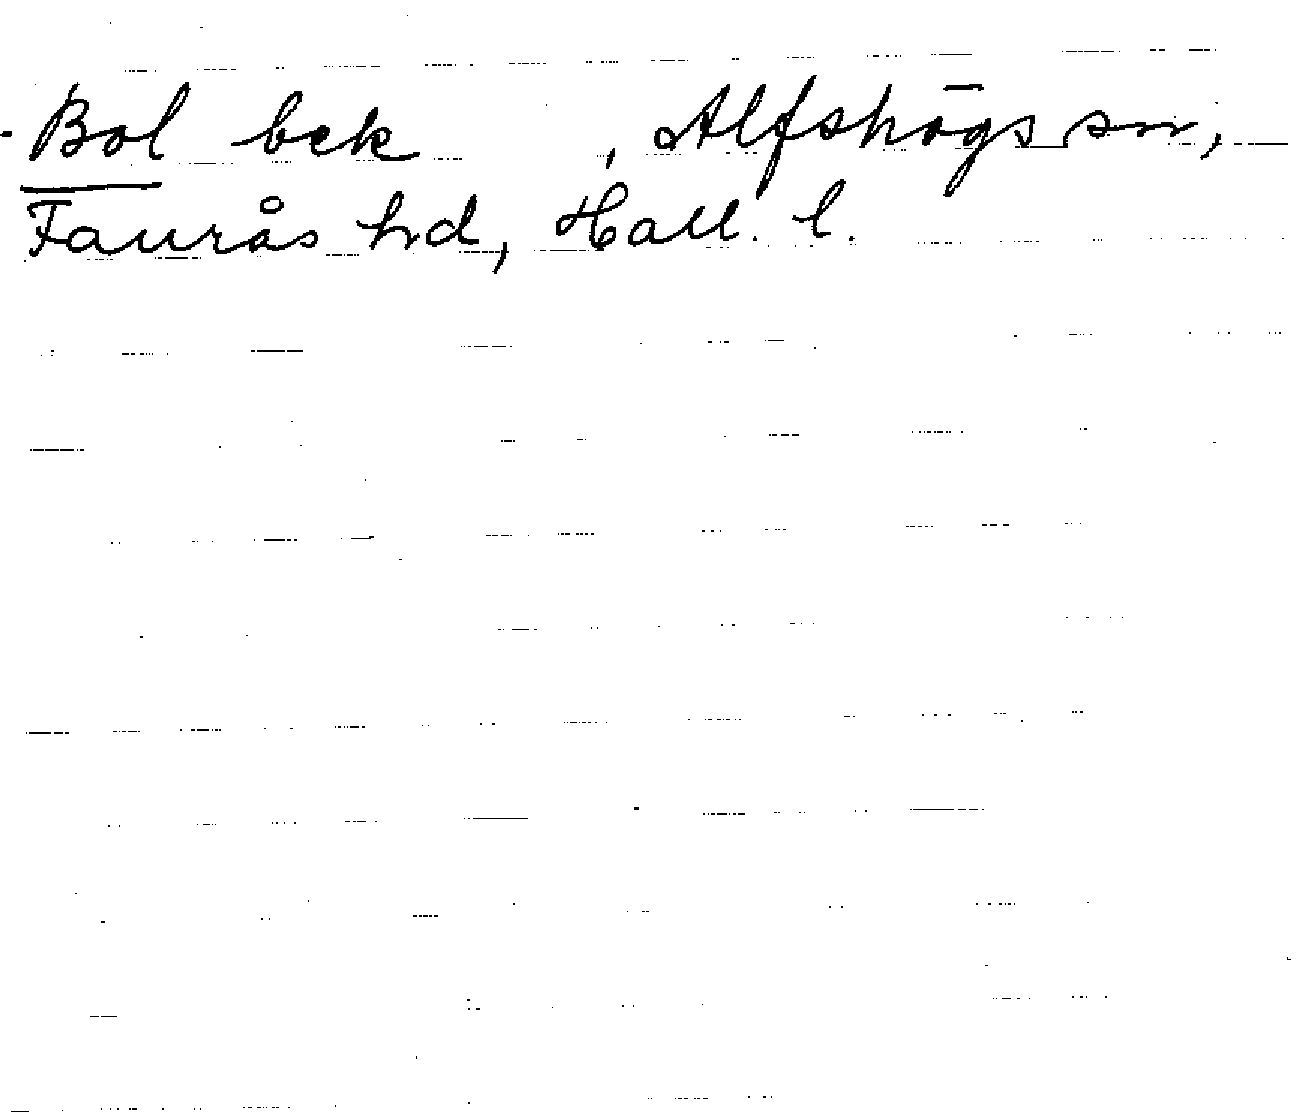 Bol bek , Alfshögs sn,
Faurås hd, Hall. l.